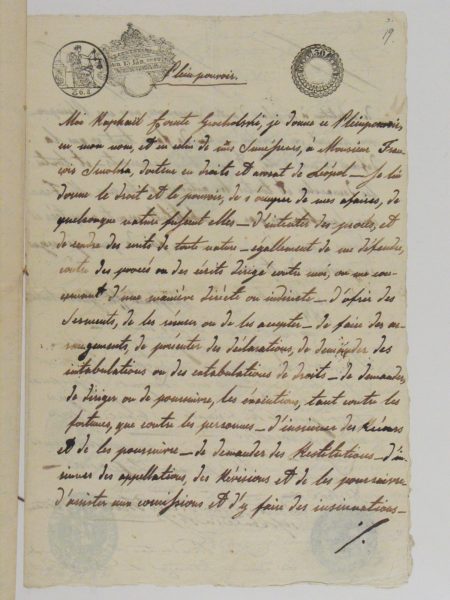 19.
30
Pleinpouvoir.
Moi Raphaël Comte Grocholski, je donne ce Pleinpouvoir,
en mon nom, et en celui de mes à Monsieur Fran-
çois Smolka, docteur en droits et avocat de Léopol – Je lui
donne le droit et le pouvoir, de s'occuper de mes afaires, de
quelconque nature fussent elles – d'intenter des procès, et
de rendre des écrits de toute nature – également de me défendre,
contre des procès ou des écrits dirigé contre moi, ou me con-
cernant d'une manière directe ou indirecte – d'ofrir des
Serments, de les ou de les accepter – de faire des ar-
rangements, de présenter des déclarations, de demander des
intabulations ou des extabulations de droits – de demander,
de diriger ou de poursuivre, les exécutions, tant contre les
fortunes, que contre les personnes – d'insinuer des
et de les poursuivre – de demander des Restitutions – d'in-
sinuer des appellations, des Révisions et de les poursuivre
d'assister aux comissions et d'y faire des insinuations –
./.